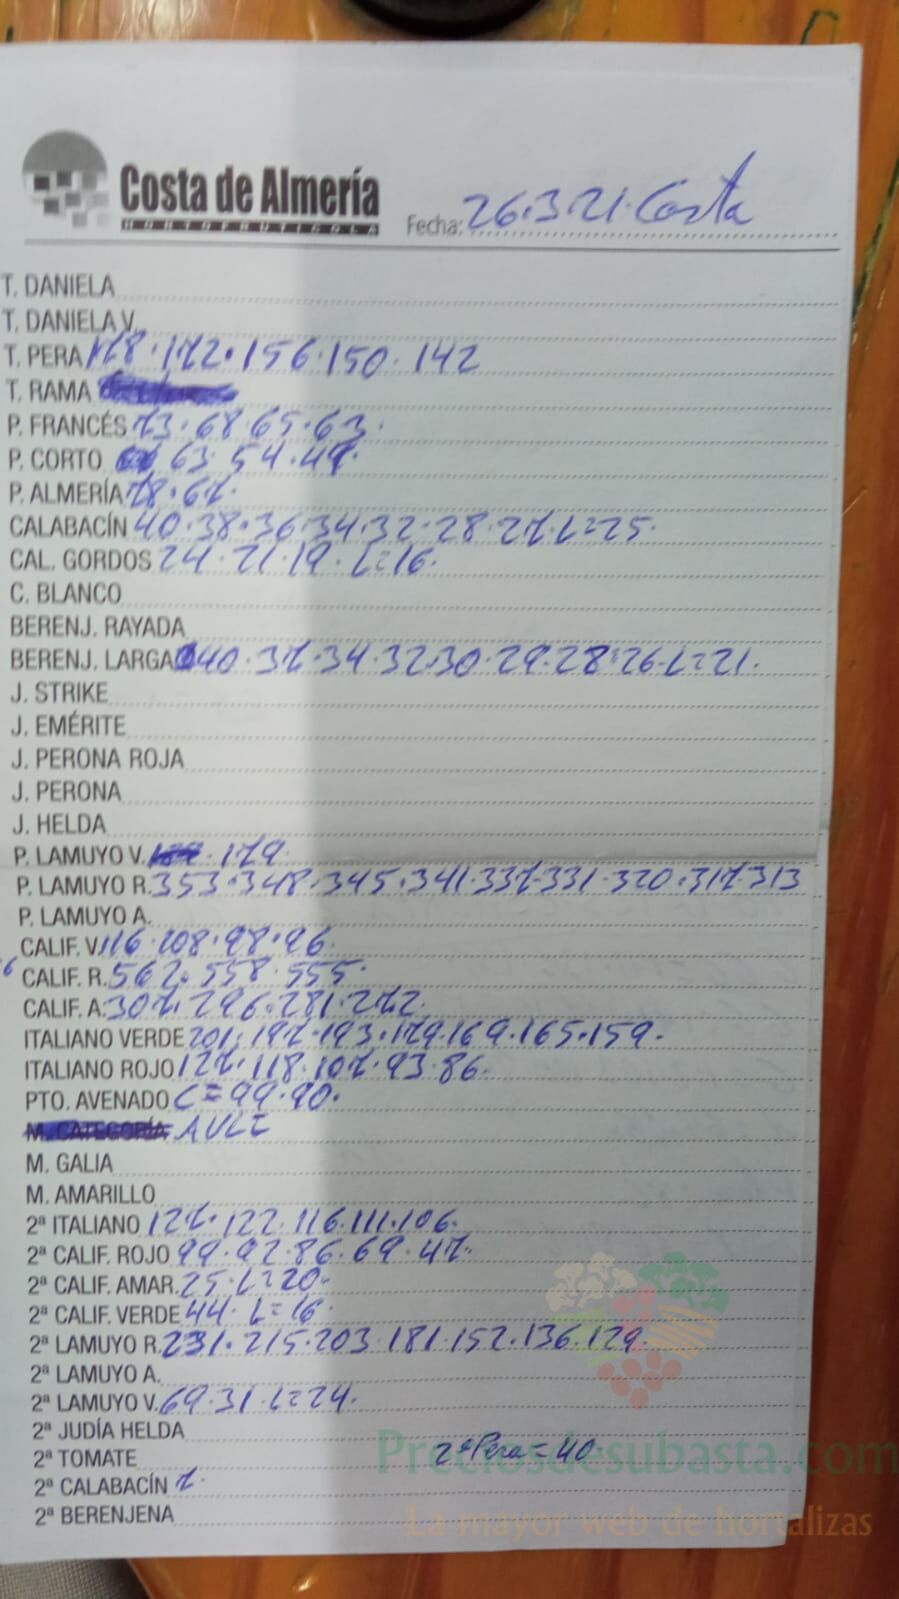 Costa de Almería
HORTOFRUTICOLA
Fecha: 26.3.21. Costa
T. DANIELA
T. DANIELA V.
T. PERA 178.172.156.150.142
T. RAMA
P. FRANCÉS 73.68.65.63.
P. CORTO 63.54.47.
P. ALMERÍA 78.67.
CALABACÍN 40.38.36.34.32.28.27.L=25.
CAL. GORDOS 24.21.19.L=16.
C. BLANCO
BERENJ. RAYADA
BERENJ. LARGA 40.37.34.32.30.29.28.26.L=21.
J. STRIKE
J. EMÉRITE
J. PERONA ROJA
J. PERONA
J. HELDA
P. LAMUYO V. 179.
P. LAMUYO R. 353.348.345.341.337.331.320.317.313
P. LAMUYO A.
CALIF. V. 116.108.98.96.
CALIF. R. 567.558.555.
CALIF. A. 307.296.281.272.
ITALIANO VERDE 201.197.193.179.169.165.159.
ITALIANO ROJO 127.118.107.93.86.
PTO. AVENADO C=99.90.
M. CATEGORÍA
M. GALIA
M. AMARILLO
2ª ITALIANO 127.122.116.111.106.
2ª CALIF. ROJO 99.92.86.69.47.
2ª CALIF. AMAR. 25.L=20.
2ª CALIF. VERDE 44.L=16.
2ª LAMUYO R. 231.215.203.181.152.136.129.
2ª LAMUYO A.
2ª LAMUYO V. 69.31.L=24.
2ª JUDÍA HELDA
2ª TOMATE 2ª Pera=40
Preciosdesubasta.com
2ª CALABACÍN 7.
2ª BERENJENA
La mayor web de hortalizas